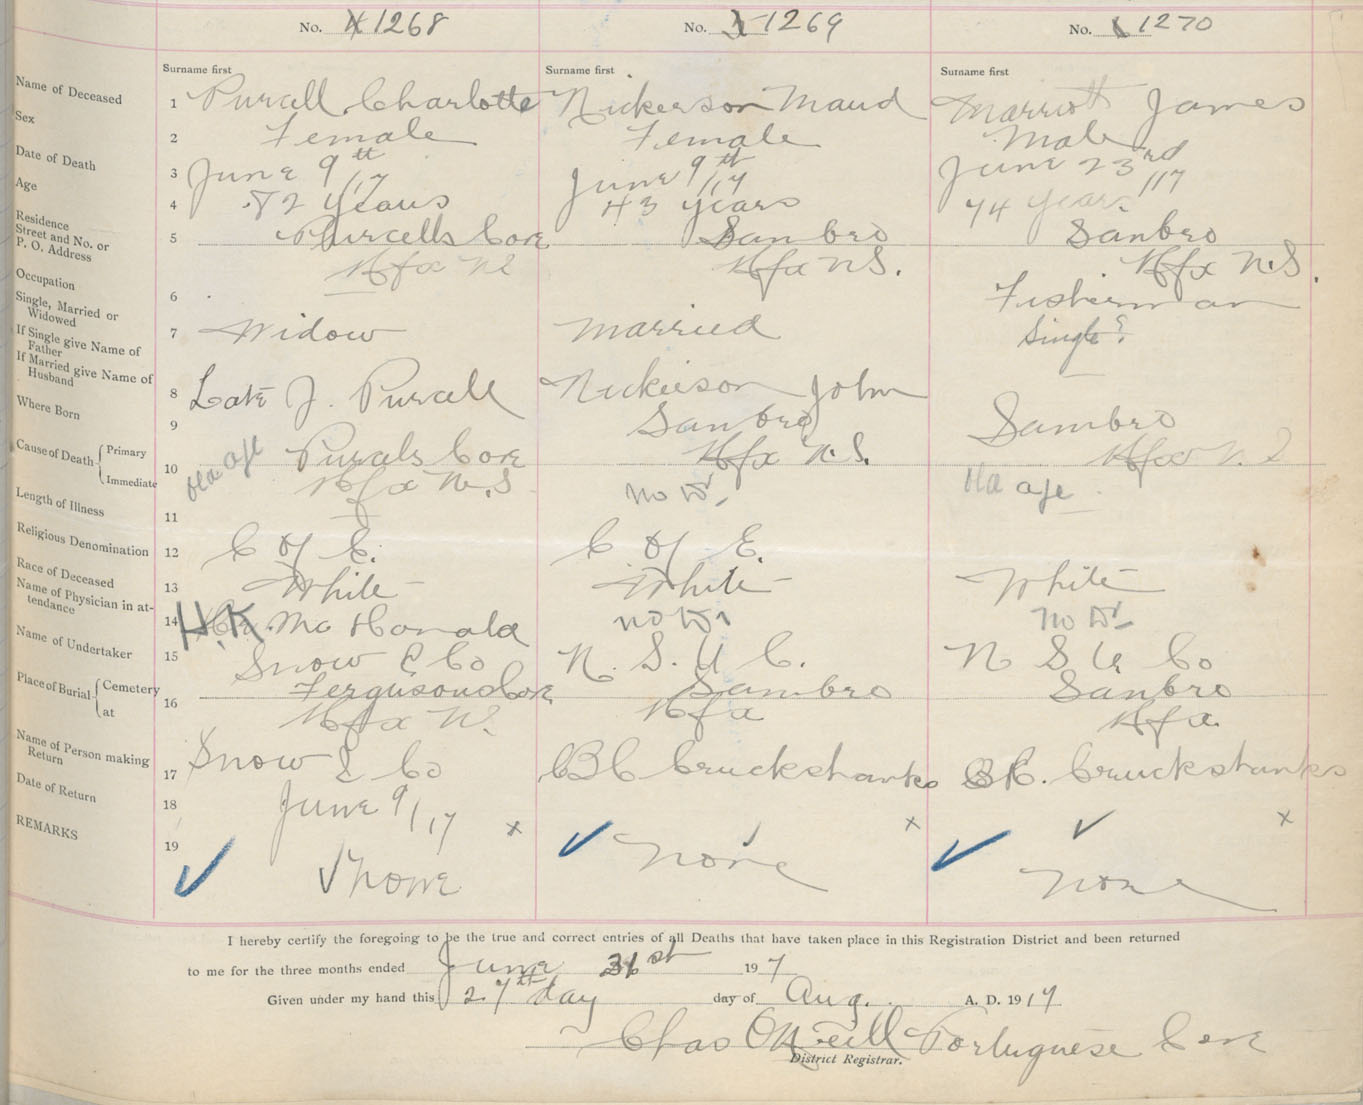 No. 1268 No. 1269 No. 1270
Surname first Surname first Surname first
Name of Deceased 1 Purcell Charlotte Nickerson Maud Marriott James
Sex 2 Female Female Male
Date of Death 3 June 9th /17 June 9th /17 June 23rd /17
Age 4 82 Years 43 Years 74 Years
Residence
Street and No. or
P. O. Address 5 Purcells Cove Sanbro Sanbro
Hfx NS Hfx N.S. Hfx N.S.
Occupation 6 Fisherman
Single, Married or
Widowed 7 Widow Married Single?
If Single give Name of
Father
If Married give Name of
Husband 8 Late J. Purcell Nickieson John
Where Born 9 Sanbro Sambro
Cause of Death { Primary Purcels Cove Hfx N.S. Hfx N.S
Immediate 10 Old age Hfx N.S no Dr. Old age
Length of Illness 11
Religious Denomination 12 C of E. C of E.
Race of Deceased 13 White White White
Name of Physician in at-
tendance 14 H.K. McDonald no Dr no Dr
Name of Undertaker 15 Snow & Co N. S. U C. N S U Co
Place of Burial { Cemetery Fergusons Cove Sambro Sanbro
at 16 Hfx N. Hfx Hfx
Name of Person making
Return 17 Snow & Co CBC Cruckshanks Cruckshanks
Date of Return 18 June 9/17 x x x
REMARKS 19 none none none
I hereby certify the foregoing to be the true and correct entries of all Deaths that have taken place in this Registration District and been returned
to me for the three months ended June 31st 197
Given under my hand this 27th day day of Aug. A. D. 1917
Chas O'Neill Portuguese Cove
District Registrar.